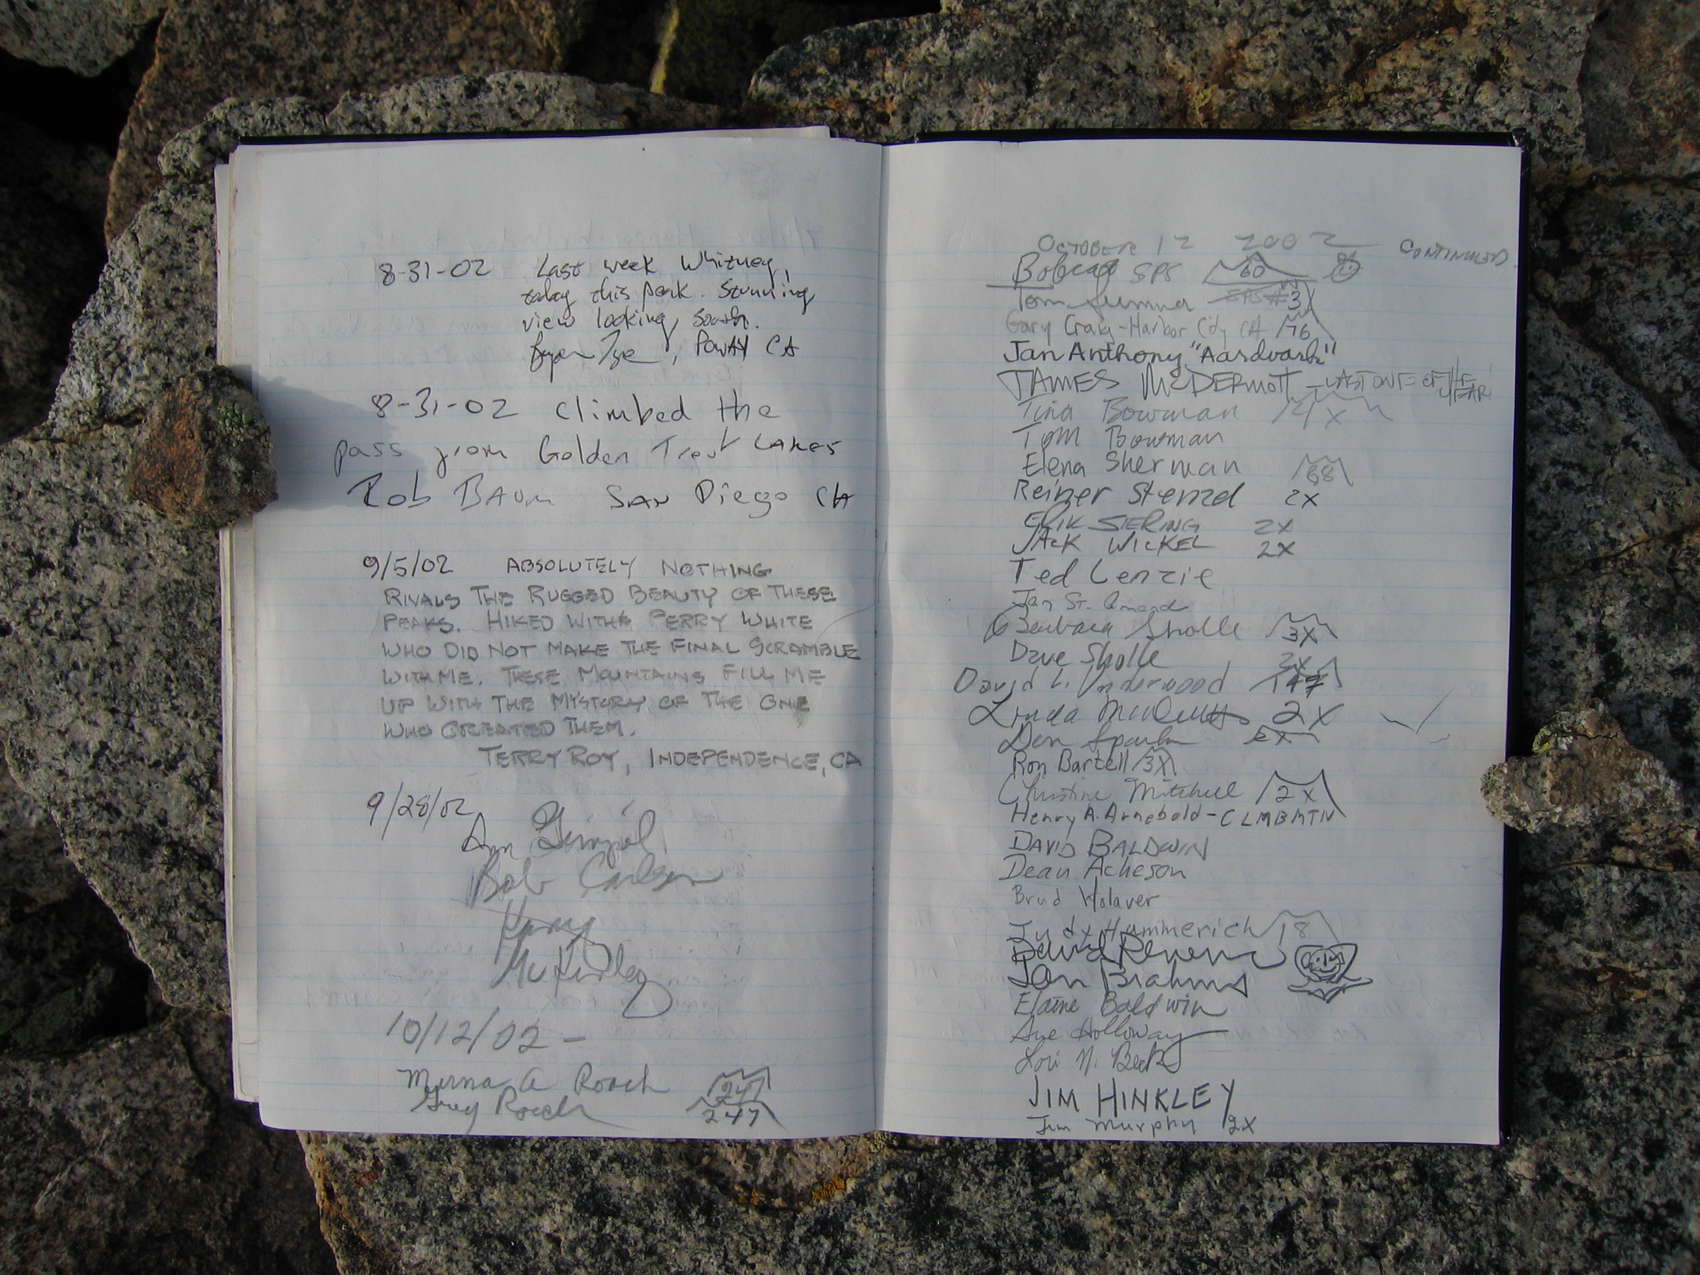 8-31-02 Last week Whitney,
today this peak. Stunning
view looking south.
Poway CA
8-31-02 climbed the
pass from Golden Trout Lakes
Rob Baum San Diego CA
9/5/02 ABSOLUTELY NOTHING
RIVALS THE RUGGED BEAUTY OF THESE
PEAKS. HIKED WITH PERRY WHITE
WHO DID NOT MAKE THE FINAL SCRAMBLE
WITH ME. THESE MOUNTAINS FILL ME
UP WITH THE MYSTORY OF THE ONE
WHO CREATED THEM.
TERRY ROY, INDEPENDENCE, CA
9/28/02
Ann Gimpel
Bob Carlson
McKinley
10/12/02 -
Murna A Roach 247
Greg Roach 247
OCTOBER 12 2002 CONTINUED
SPS 60
Tom Sumner
Gary Craig - Harbor City CA 76
Jan Anthony "Aardvark"
JAMES McDERMOTT - LAST ONE OF THE YEAR!
Tina Bowman
Tom Bowman
Elena Sherman 68
Reiner Stenzel 2x
ERIK SIERING 2x
JACK WICKEL 2X
Ted Lenzie
Jan St. Amand
Barbara Sholle 3X
Dave Sholle 3x
David L. Underwood
Linda McDermott 2X
Ron Bartell 3X
Christine Mitchell 2x
Henry A. Arnebold - CLMBMTN
DAVID BALDWIN
Dean Acheson
Brud Holaver
Judy Hummerich 18
Jan Brahms
Elaine Baldwin
Sue Holloway
Lori N. Beck
JIM HINKLEY
Jim Murphy 2x